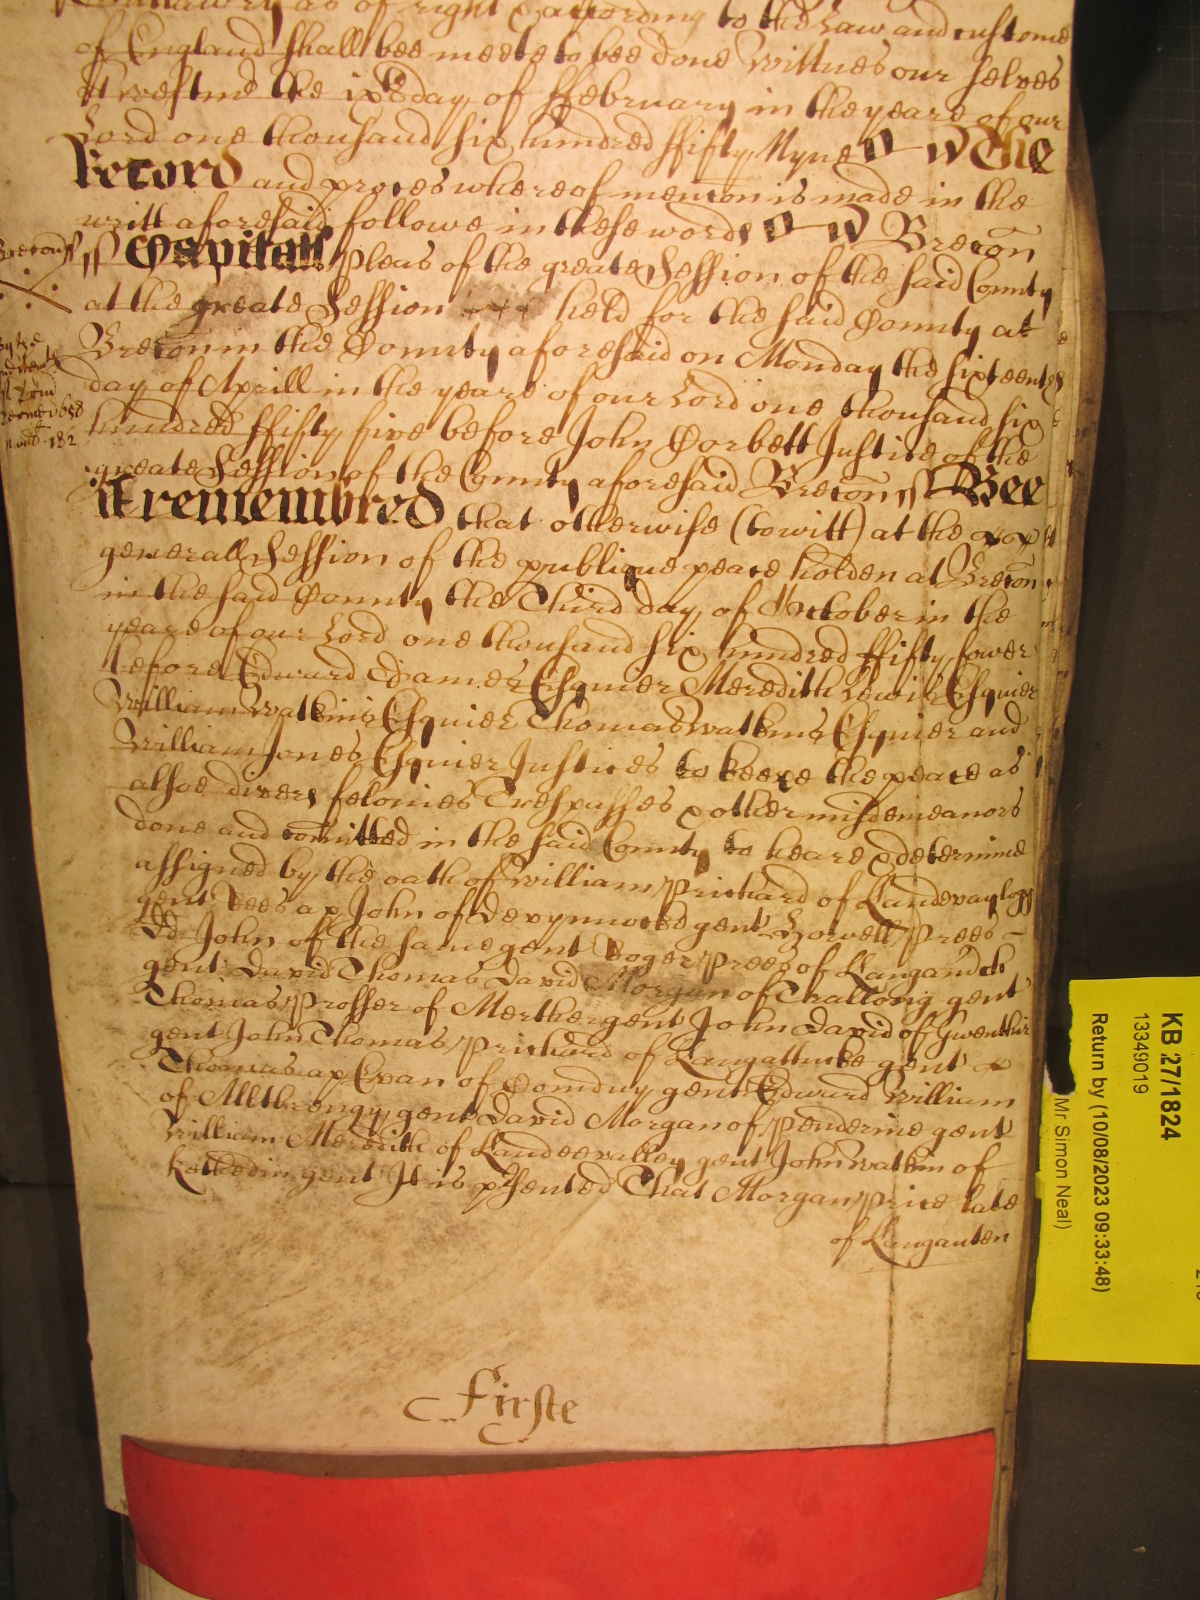 as of right & according to the Law and custome
of England shall bee meete to bee done Wittnes our selves
at Westmr the ixth day of ffebruary in the yeare of our
Lord one thousand six hundred ffifty Nyne The
Record and proces whereof mencon is made in the
writt aforesaid followe in these words Brecon
Brecon ss
ss Capitall Pleas of the greate Session of the said County
at the greate Session held for the said County at
Brecon in the County aforesaid on Monday the sixteenth
day of Aprill in the yeare of our Lord one thousand six
hundred ffifty five before John Corbett Justice of the
greate Session of the County aforesaid Brecon ss Bee
it remembred that otherwise (to witt) at the
generall Session of the publique peace holden at Brecon
in the said County the Third day of October in the
yeare of our Lord one thousand six hundred ffifty fower
before Edward Games Esquier Meredith Lewis Esquier
William Watkins Esquier Thomas Watkins Esquier and
William Jones Esquier Justices to keepe the peace as
alsoe divers felonies Trespasses & other misdemeanors
done and comitted in the said County to heare & determine
assigned by the oath of William Prichard of Landevaylogg
gent Rees ap John of Devynnocke gent Howell Prees
DD John of the same gent Roger Prees of Langanch
gent David Thomas David Morgan of Trallong gent
Thomas Prosser of Merther gent John David of Gwenthir
gent John Thomas Prichard of Langattocke gent
Thomas ap Evan of Comduy gent Edward William
of Alltbrengy gent David Morgan of Penderine gent
William Meredith of Landevalley gent John Watkin of
Kethedin gent It is psented That Morgan Price late
of Langanten
Firste
KB 27/1824
13349019
Return by (10/08/2023 09:33:48)
Mr Simon Neal)